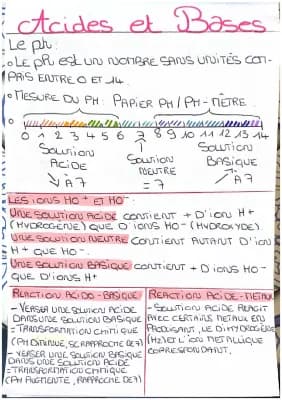 Acides et Bases
Le ph:
• LE PH EST UN NOMBRE SANS UNITÉS COM-
PRIS ENTRE 0 ET 14.
• MESURE DU PH: PAPIER PH / PH-MÈTRE.
0 1 2 3 4 5 6 7 8 9 10 11 12 13 14
SOLUTION ACIDE ↘ À 7
SOLUTION NEUTRE = 7
SOLUTION BASIQUE ↗ À 7
LES IONS HO+ ET HO-
UNE SOLUTION ACIDE CONTIENT + D'ION H+
(HYDROGÈNE) QUE D'IONS HO- (HYDROXYDE).
UNE SOLUTION NEUTRE CONTIENT AUTANT D'ION
H+ QUE HO-.
UNE SOLUTION BASIQUE CONTIENT + D'IONS HO-
QUE D'IONS H+
RÉACTION ACIDO-BASIQUE
- VERSER UNE SOLUTION ACIDE
DANS UNE SOLUTION BASIQUE
= TRANSFORMATION CHIMIQUE
(PH DIMINUE, SE RAPPROCHE DE 7)
- VERSER UNE SOLUTION BASIQUE
DANS UNE SOLUTION ACIDE
= TRANSFORMATION CHIMIQUE
(PH AUGMENTE, RAPPROCHE DE 7)
RÉACTION ACIDE-MÉTAUX
- SOLUTION ACIDE RÉAGIT
AVEC CERTAINS MÉTAUX EN
PRODUISANT, LE DIHYDROGÈNE
(H2) ET L'ION MÉTALLIQUE
CORRESPONDANT.